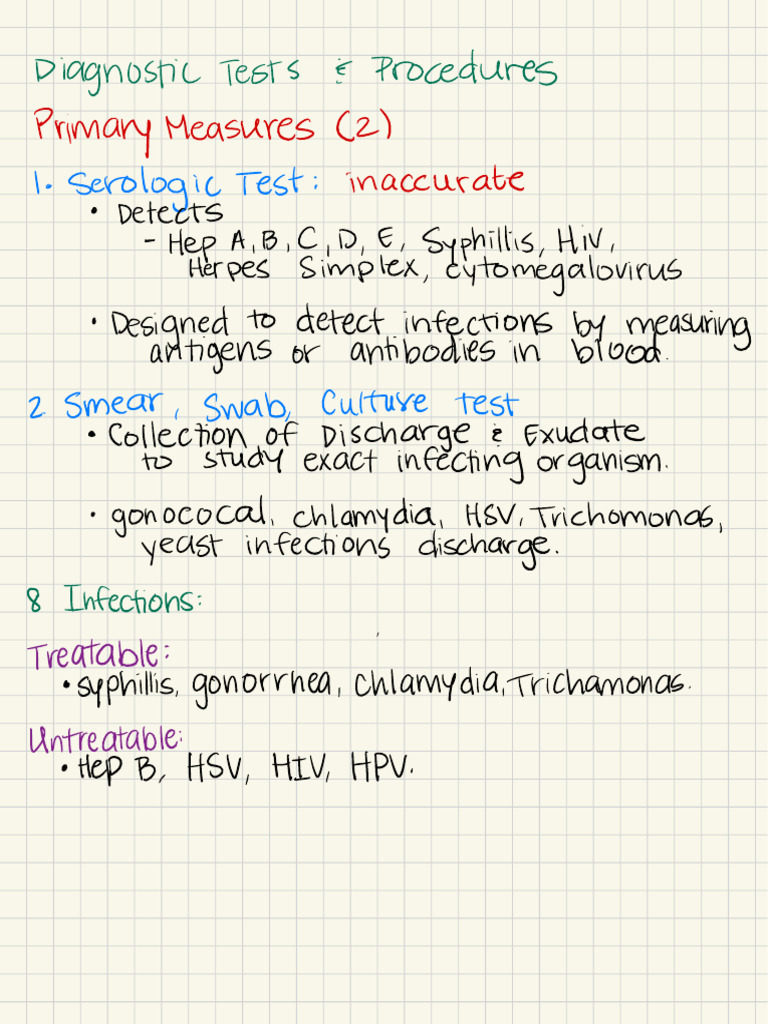 Diagnostic Tests & Procedures
Primary Measures (2)
1. Serologic Test: inaccurate
• Detects
- Hep A, B, C, D, E, Syphillis, HiV,
Herpes Simplex, cytomegalovirus
• Designed to detect infections by measuring
antigens or antibodies in blood.
2 Smear, Swab, Culture test
• Collection of Discharge & Exudate
to study exact infecting organism.
• gonococal, chlamydia, HSV, Trichomonas,
yeast infections discharge.
8 Infections:
Treatable:
• syphillis, gonorrhea, Chlamydia, Trichamonas.
Untreatable:
• Hep B, HSV, HIV, HPV.